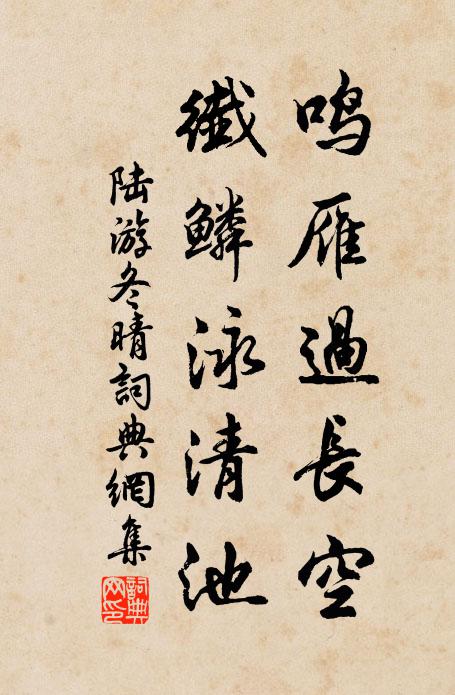 鸣雁過長空
纖鱗泳清池
陆游冬晴詞典網集
詞典网印